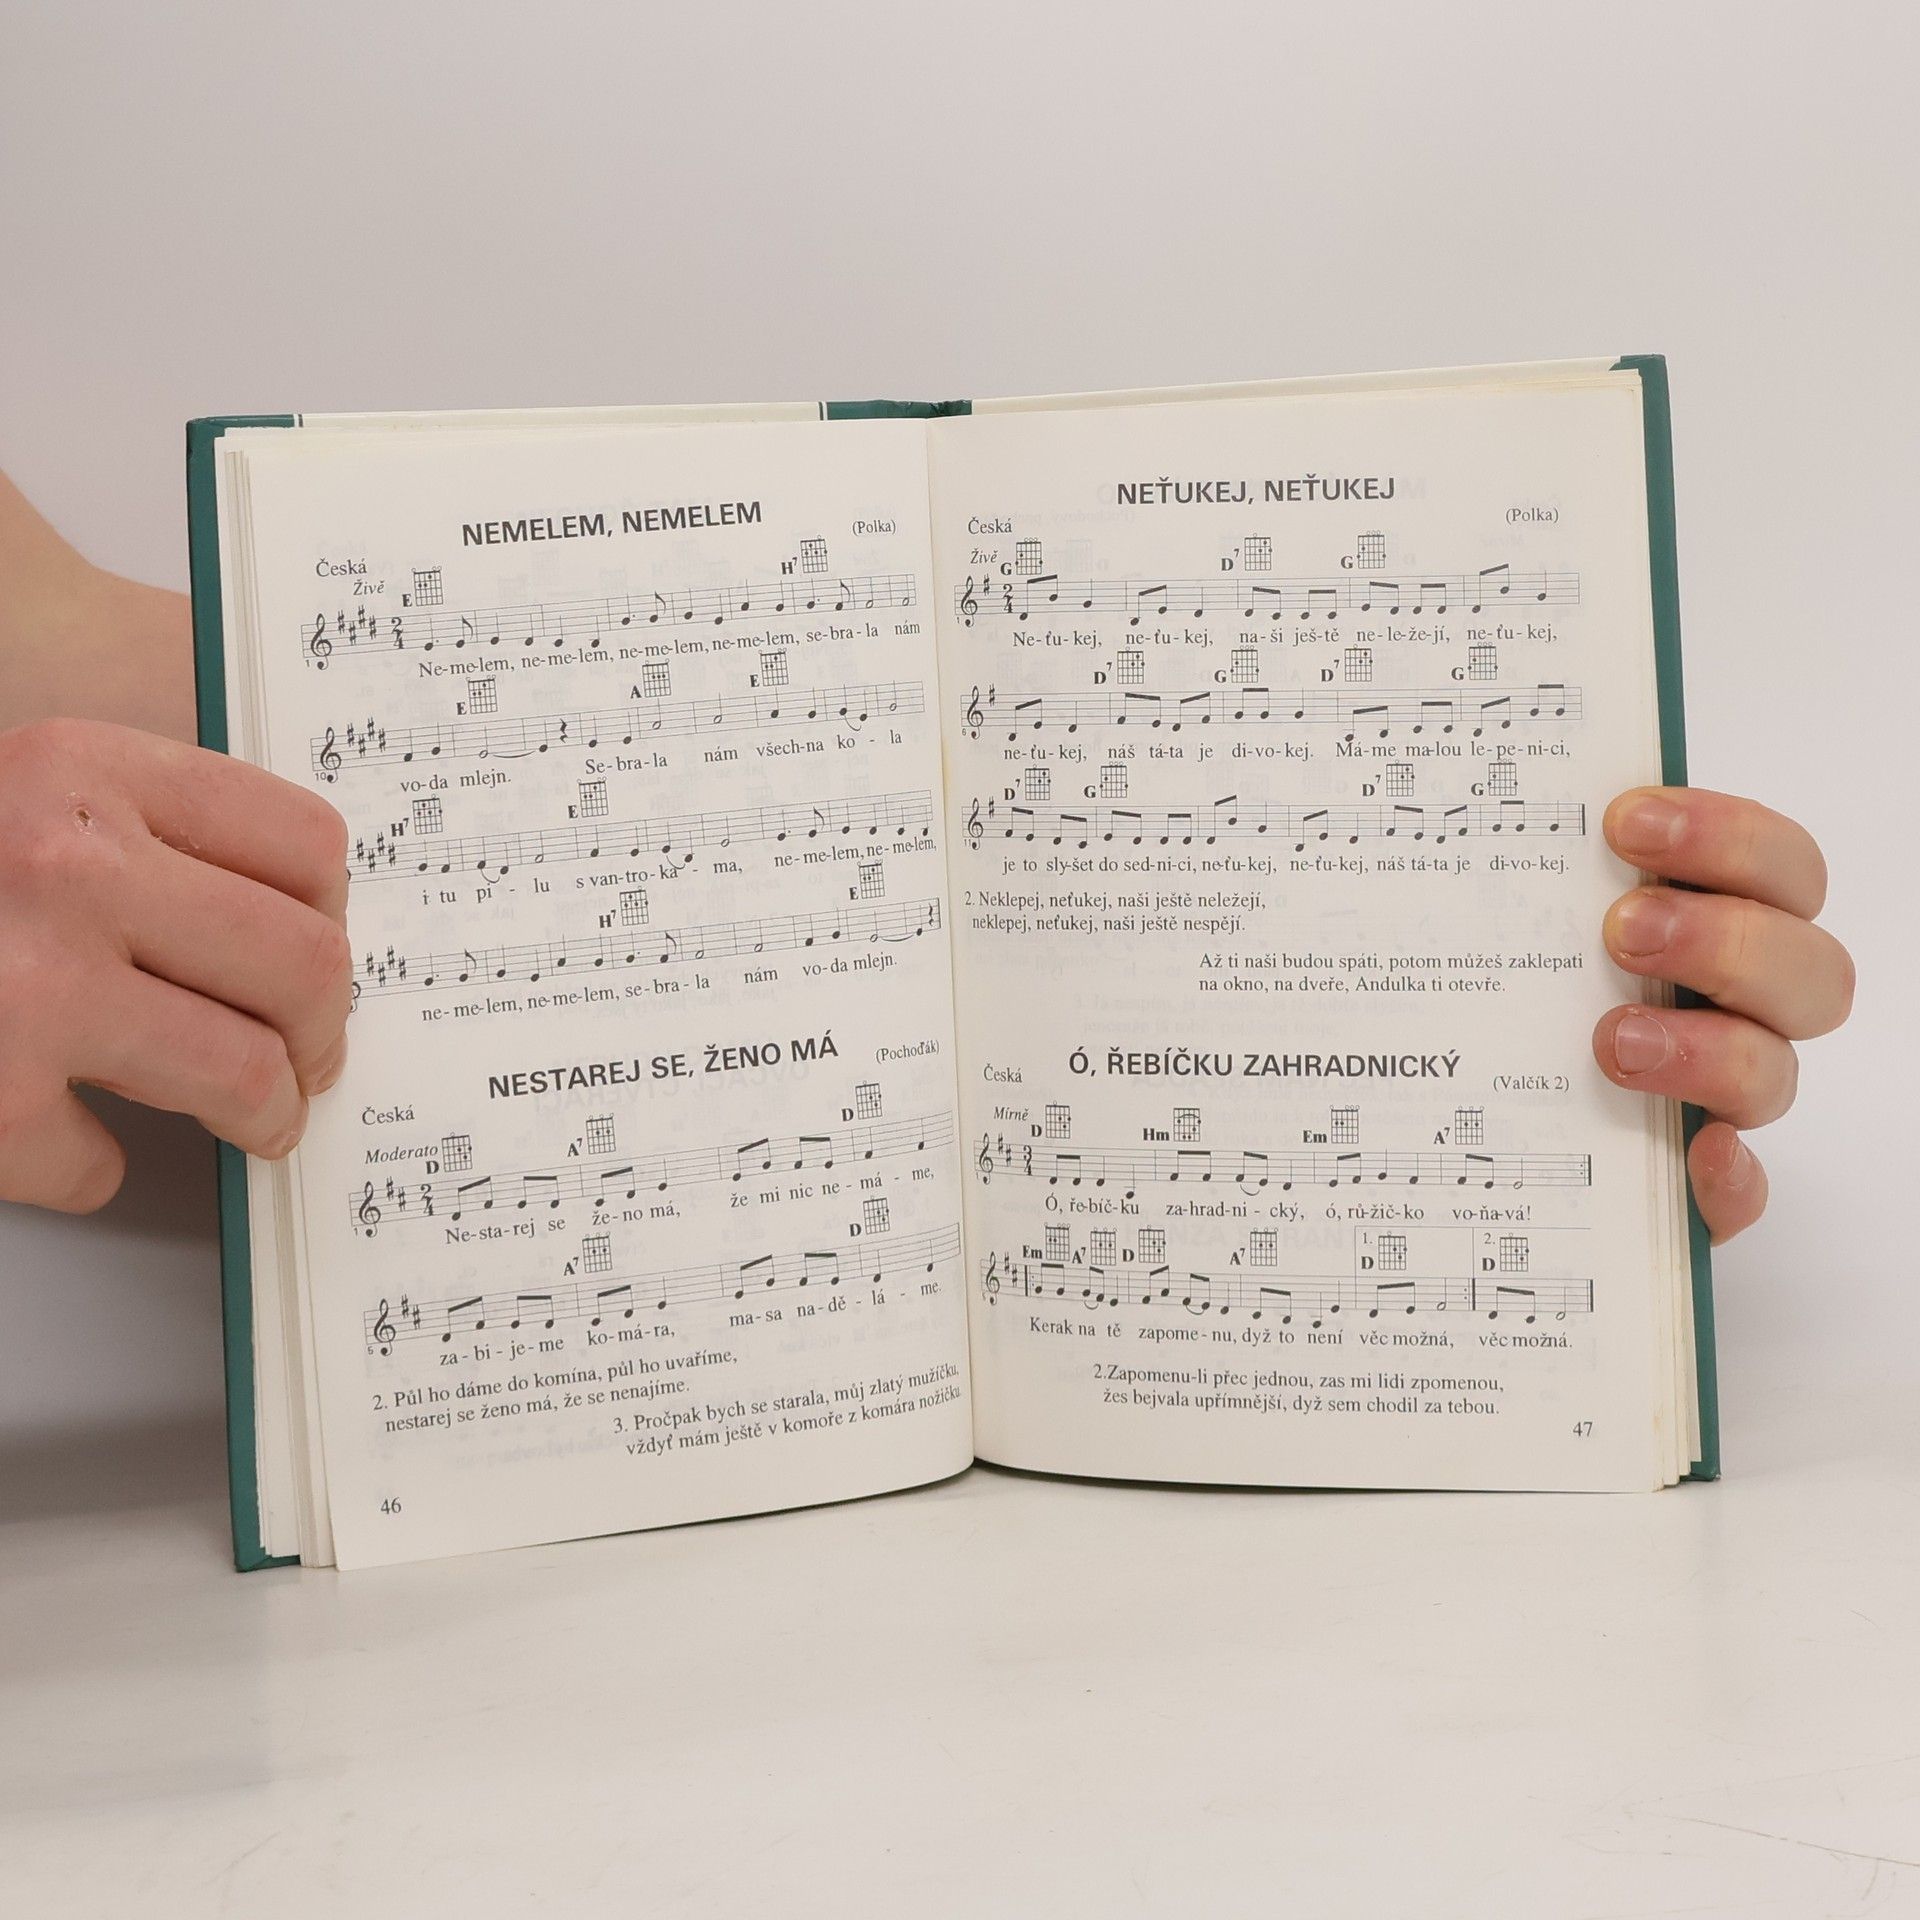 NEMELEM, NEMELEM
(Polka)
Česká
Živě
E H7
2
4
1
Ne-me-lem, ne-me-lem, ne-me-lem, ne-me-lem, se-bra-la nám
E A E
10
vo-da mlejn. Se-bra-la nám všech-na ko - la
H7 E
i tu pi - lu s van-tro-ka - ma, ne-me-lem, ne-me-lem,
H7 E
ne-me-lem, ne-me-lem, se-bra-la nám vo-da mlejn.
NESTAREJ SE, ŽENO MÁ
(Pochoďák)
Česká
Moderato
D A7 D
2
4
1
Ne-sta-rej se že-no má, že mi nic ne-má-me,
A7 D
5
za-bi-je-me ko-má-ra, ma-sa na-dě-lá-me.
2. Půl ho dáme do komína, půl ho uvaříme,
nestarej se ženo má, že se nenajíme.
3. Pročpak bych se starala, můj zlatý mužíčku,
vždyť mám ještě v komoře z komára nožičku.
46
NEŤUKEJ, NEŤUKEJ
Česká
(Polka)
Živě
G D7 G
2
4
1
Ne-ťu-kej, ne-ťu-kej, na-ši ješ-tě ne-le-že-jí, ne-ťu-kej,
D7 G D7 G
6
ne-ťu-kej, náš tá-ta je di-vo-kej. Má-me ma-lou le-pe-ni-ci,
D7 G D7 G
11
je to sly-šet do sed-ni-ci, ne-ťu-kej, ne-ťu-kej, náš tá-ta je di-vo-kej.
2. Neklepej, neťukej, naši ještě neležejí,
neklepej, neťukej, naši ještě nespějí.
Až ti naši budou spáti, potom můžeš zaklepati
na okno, na dveře, Andulka ti otevře.
Ó, ŘEBÍČKU ZAHRADNICKÝ
Česká
(Valčík 2)
Mírně
D Hm Em A7
3
4
1
Ó, ře-bíč-ku za-hrad-ni-cký, ó, rů-žič-ko vo-ňa-vá!
Em A7 D A7 1. D 2. D
5
Kerak na tě zapome-nu, dyž to není věc možná, věc možná.
2.Zapomenu-li přec jednou, zas mi lidi zpomenou,
žes bejvala upřímnější, dyž sem chodil za tebou.
47